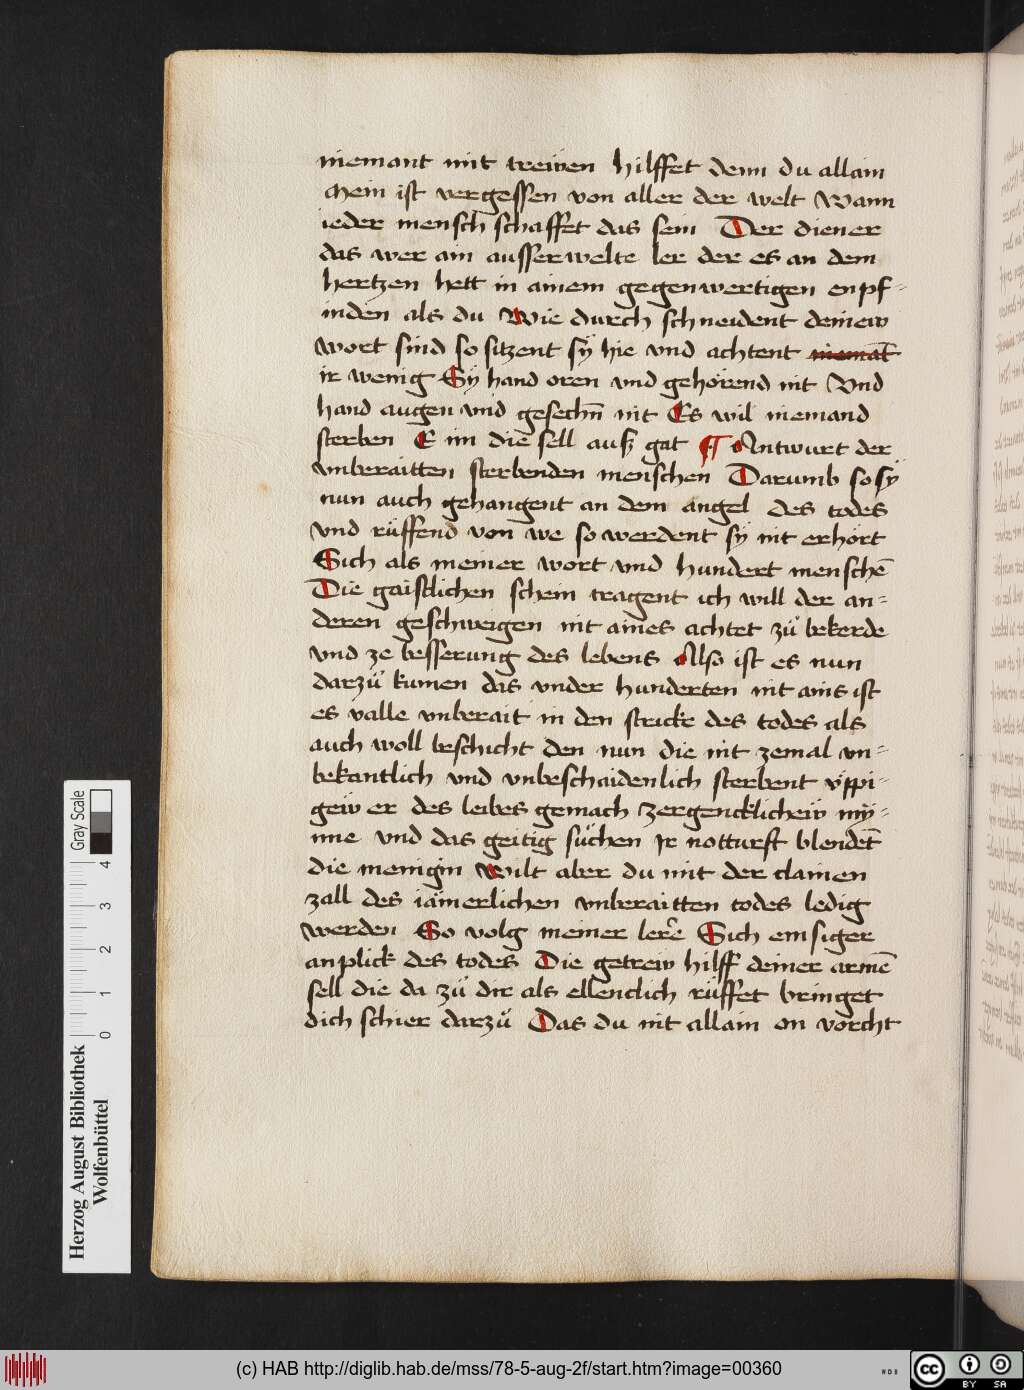 niemant mit treiwen hilffet denn du allain
Mein ist vergessen von aller der welt Wann
ieder mensch schaffet das sein Der diener
das wer ain ausserwelte ler der es an dem
hertzen hett in ainem gegenwertigen enpf-
inden als du Wie durch schneident deinew
wort sind so sitzent sÿ hie vnd achtent niemāt
ir wenig Sÿ hand oren vnd gehörend nit Vnd
hand augen vnd gesechn̄ nit Es wil niemand
sterben E im die sell ausz gat ¶ Antwurt der
vnberaitten sterbenden menschen Darumb so sÿ
nun auch gehangent an dem angel des todes
vnd rüffend von we so werdent sÿ nit erhört
Sich als meiner wort vnd hundert menschē
Die gaistlichen schein tragent ich will der an-
deren geschweigen nit aines achtet zů bekerde
vnd ze besserung des lebens Also ist es nun
darzů kumen das vnder hunderten nit ains ist
es valle vnberait in den stricke des todes als
auch woll beschicht den nun die nit zemal vn-
bekantlich vnd vnbeschaidenlich sterbent v̈ppi-
geiw er des leibes gemach zergencklicheiw mÿ-
nne vnd das geitig süchen Ir notturft blendet̄
die menigin Wilt aber du mit der clainen
zall des iämerlichen vnberaitten todes ledig
werden So volg meiner lere Sich emsiger
anplick des todes Die getreiw hilff deiner armē
sell die da zů dir als ellenclich rüffet bringet
dich schier darzů Das du nit allain on vörcht
Gray Scale
0 1 2 3 4
Herzog August Bibliothek
Wolfenbüttel
(c) HAB http://diglib.hab.de/mss/78-5-aug-2f/start.htm?image=00360
WDB
cc
BY SA